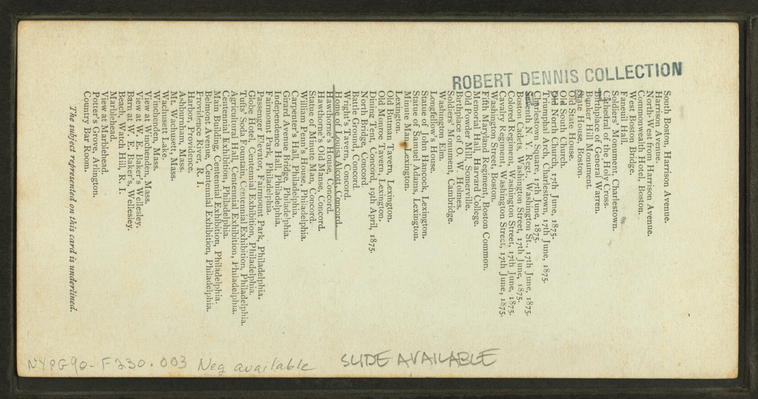 ROBERT DENNIS COLLECTION
South Boston, Harrison Avenue.
Harrison Avenue.
North-West from Harrison Avenue.
Commonwealth Hotel, Boston.
West Boston Bridge.
Faneuil Hall.
Soldiers' Monument, Charlestown.
Cathedral of the Holy Cross.
Birthplace of General Warren.
Bunker Hill Monument.
State House, Boston.
Old State House.
Old South Church.
Triumphal Arch, Charlestown, 17th June, 1875.
Old North Church, 17th June, 1875.
Charlestown Square, 17th June, 1875.
Seventh N. Y. Reg't, Washington St., 17th June, 1875.
Boston Cadets, Washington Street, 17th June, 1875.
Colored Regiment, Washington Street, 17th June, 1875.
Cavalry Regiment, Washington Street, 17th June, 1875.
Washington Street, Boston.
Fifth Maryland Regiment, Boston Common.
Memorial Hall, Harvard College.
Old Powder Mill, Somerville.
Birthplace of O. W. Holmes.
Soldiers' Monument, Cambridge.
Washington Elm.
Longfellow's House.
Statue of John Hancock, Lexington.
Statue of Samuel Adams, Lexington.
Minute Man, Lexington.
Lexington.
Old Buhman Tavern, Lexington.
Old Munroe Tavern, Lexington.
Dining Tent, Concord, 19th April, 1875.
North Bridge, Concord.
Battle Ground, Concord.
Wright's Tavern, Concord.
Home of Louisa Alcott, Concord.
Hawthorne's House, Concord.
Hawthorne's Old Manse, Concord.
Statue of Minute Man, Concord.
William Penn's House, Philadelphia.
Carpenter's Hall, Philadelphia.
Girard Avenue Bridge, Philadelphia.
Independence Hall, Philadelphia.
Fairmount Park, Philadelphia.
Passenger Elevator, Fairmount Park, Philadelphia.
Globe Hotel, Centennial Exhibition, Philadelphia.
Tufts' Soda Fountain, Centennial Exhibition, Philadelphia.
Agricultural Hall, Centennial Exhibition, Philadelphia.
Centennial Exhibition, Philadelphia.
Main Building, Centennial Exhibition, Philadelphia.
Belmont Avenue, Centennial Exhibition, Philadelphia.
Providence, R. I.
Harbor, Providence.
Ashburnham, Mass.
Mt. Wachusett, Mass.
Wachusett Lake.
Winchenden, Mass.
View at Winchenden, Mass.
View at W. E. Baker's, Wellesley.
Barn at W. E. Baker's, Wellesley.
Beach, Watch Hill, R. I.
Marblehead.
View at Marblehead.
Potter's Grove, Arlington.
Country Bar Room.
The subject represented on this card is underlined.
NYPG90-F330.003 Neg available
SLIDE AVAILABLE